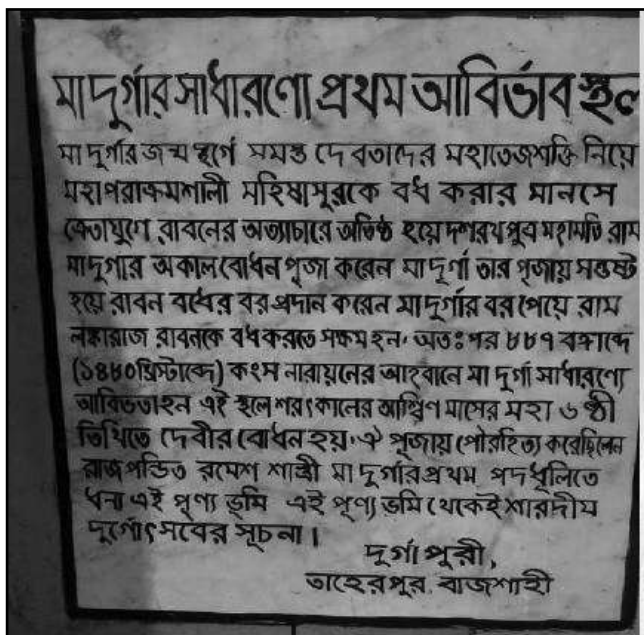 মা দুর্গার সাধারণ্যে প্রথম আবির্ভাব স্থল
মা দুর্গার জন্ম স্বর্গে সমস্ত দেবতাদের মহাতেজশক্তি নিয়ে
মহাপরাক্রমশালী মহিষাসুরকে বধ করার মানসে
ত্রেতাযুগে রাবনের অত্যাচারে অতিষ্ঠ হয়ে দশরথপুত্র মহামতি রাম
মাদুর্গার অকাল বোধন পূজা করেন মা দূর্গা তার পূজায় সন্তুষ্ট
হয়ে রাবন বধের বর প্রদান করেন মা দুর্গার বর পেয়ে রাম
লঙ্কারাজ রাবনকে বধ করতে সক্ষম হন, অতঃপর ৮৮৭ বঙ্গাব্দে
(১৪৮০খ্রিস্টাব্দে) কংস নারায়নের আহবানে মা দুর্গা সাধারণ্যে
আবিভতা হন এই স্থলে শরৎকালের আশ্বিণ মাসের মহা ৬ ষ্ঠী
তিথিতে দেবীর বোধন হয়, ঐ পূজায় পৌরহিত্য করেছিলেন
রাজপন্ডিত রমেশ শাস্ত্রী মা দুর্গার প্রথম পদধূলিতে
ধন্য এই পূণ্য ভূমি এই পূণ্য ভূমি থেকেই শারদীয়
দুর্গোৎসবের সূচনা।
দুর্গাপুরী,
তাহেরপুর, রাজশাহী